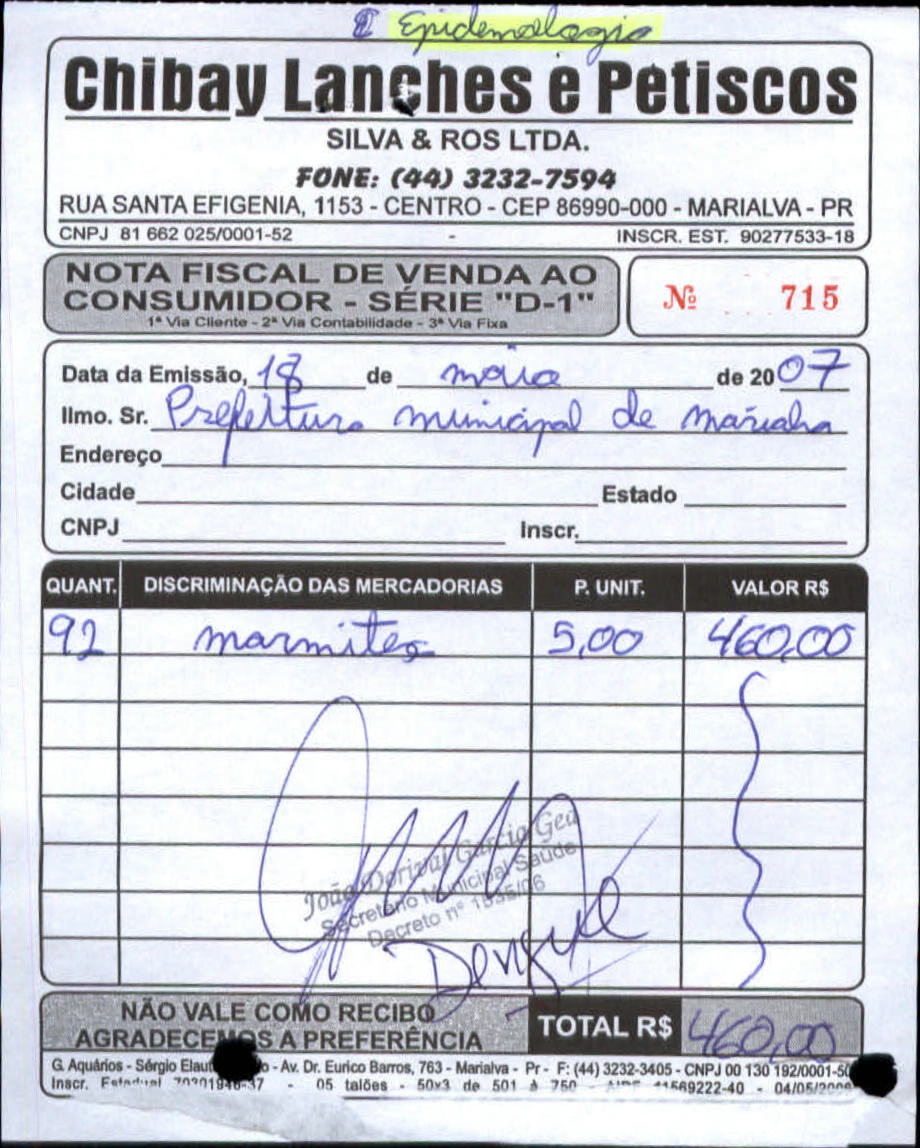 Epidemologia
Chibay Lanches e Petiscos
SILVA & ROS LTDA.
FONE: (44) 3232-7594
RUA SANTA EFIGENIA, 1153 - CENTRO - CEP 86990-000 - MARIALVA - PR
CNPJ 81 662 025/0001-52 - INSCR. EST. 90277533-18
NOTA FISCAL DE VENDA AO
CONSUMIDOR - SÉRIE "D-1"
1ª Via Cliente - 2ª Via Contabilidade - 3ª Via Fixa
Nº 715
Data da Emissão, 18 de maio de 2007
Ilmo. Sr. Prefeitura municipal de Marialva
Endereço
Cidade Estado
CNPJ Inscr.
QUANT. DISCRIMINAÇÃO DAS MERCADORIAS P. UNIT. VALOR R$
92 marmitex 5,00 460,00
João Dorival Garcia Gea
Secretário Municipal Saúde
Decreto nº 1835/06
Dengue
NÃO VALE COMO RECIBO
AGRADECEMOS A PREFERÊNCIA
TOTAL R$ 460,00
G. Aquários - Sérgio - Av. Dr. Eurico Barros, 763 - Marialva - Pr - F: (44) 3232-3405 - CNPJ 00 130 192/0001-50
Inscr. Estadual - 05 talões - 50x3 de 501 à 750 - 11569222-40 - 04/05/